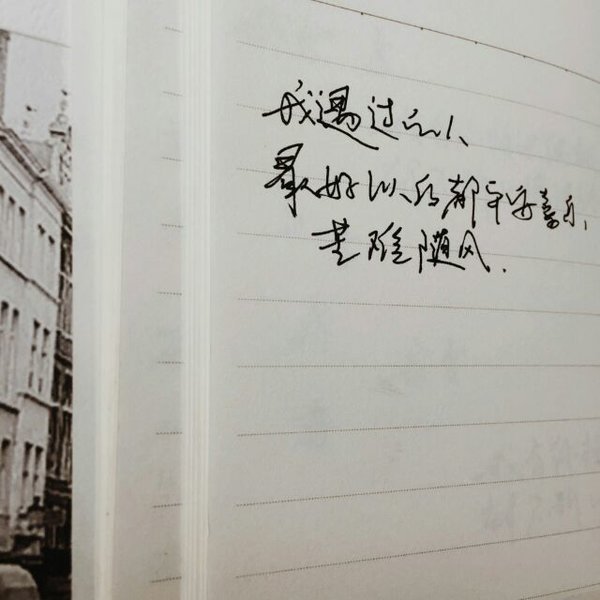 我遇过的人、
最好以后都平安喜乐,
苦难随风.